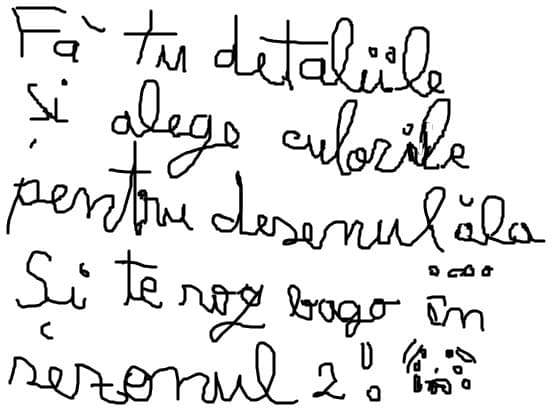 Fă tu detaliile
și alege culorile
pentru desenul ăla
Și te rog bagă în
sezonul 2!